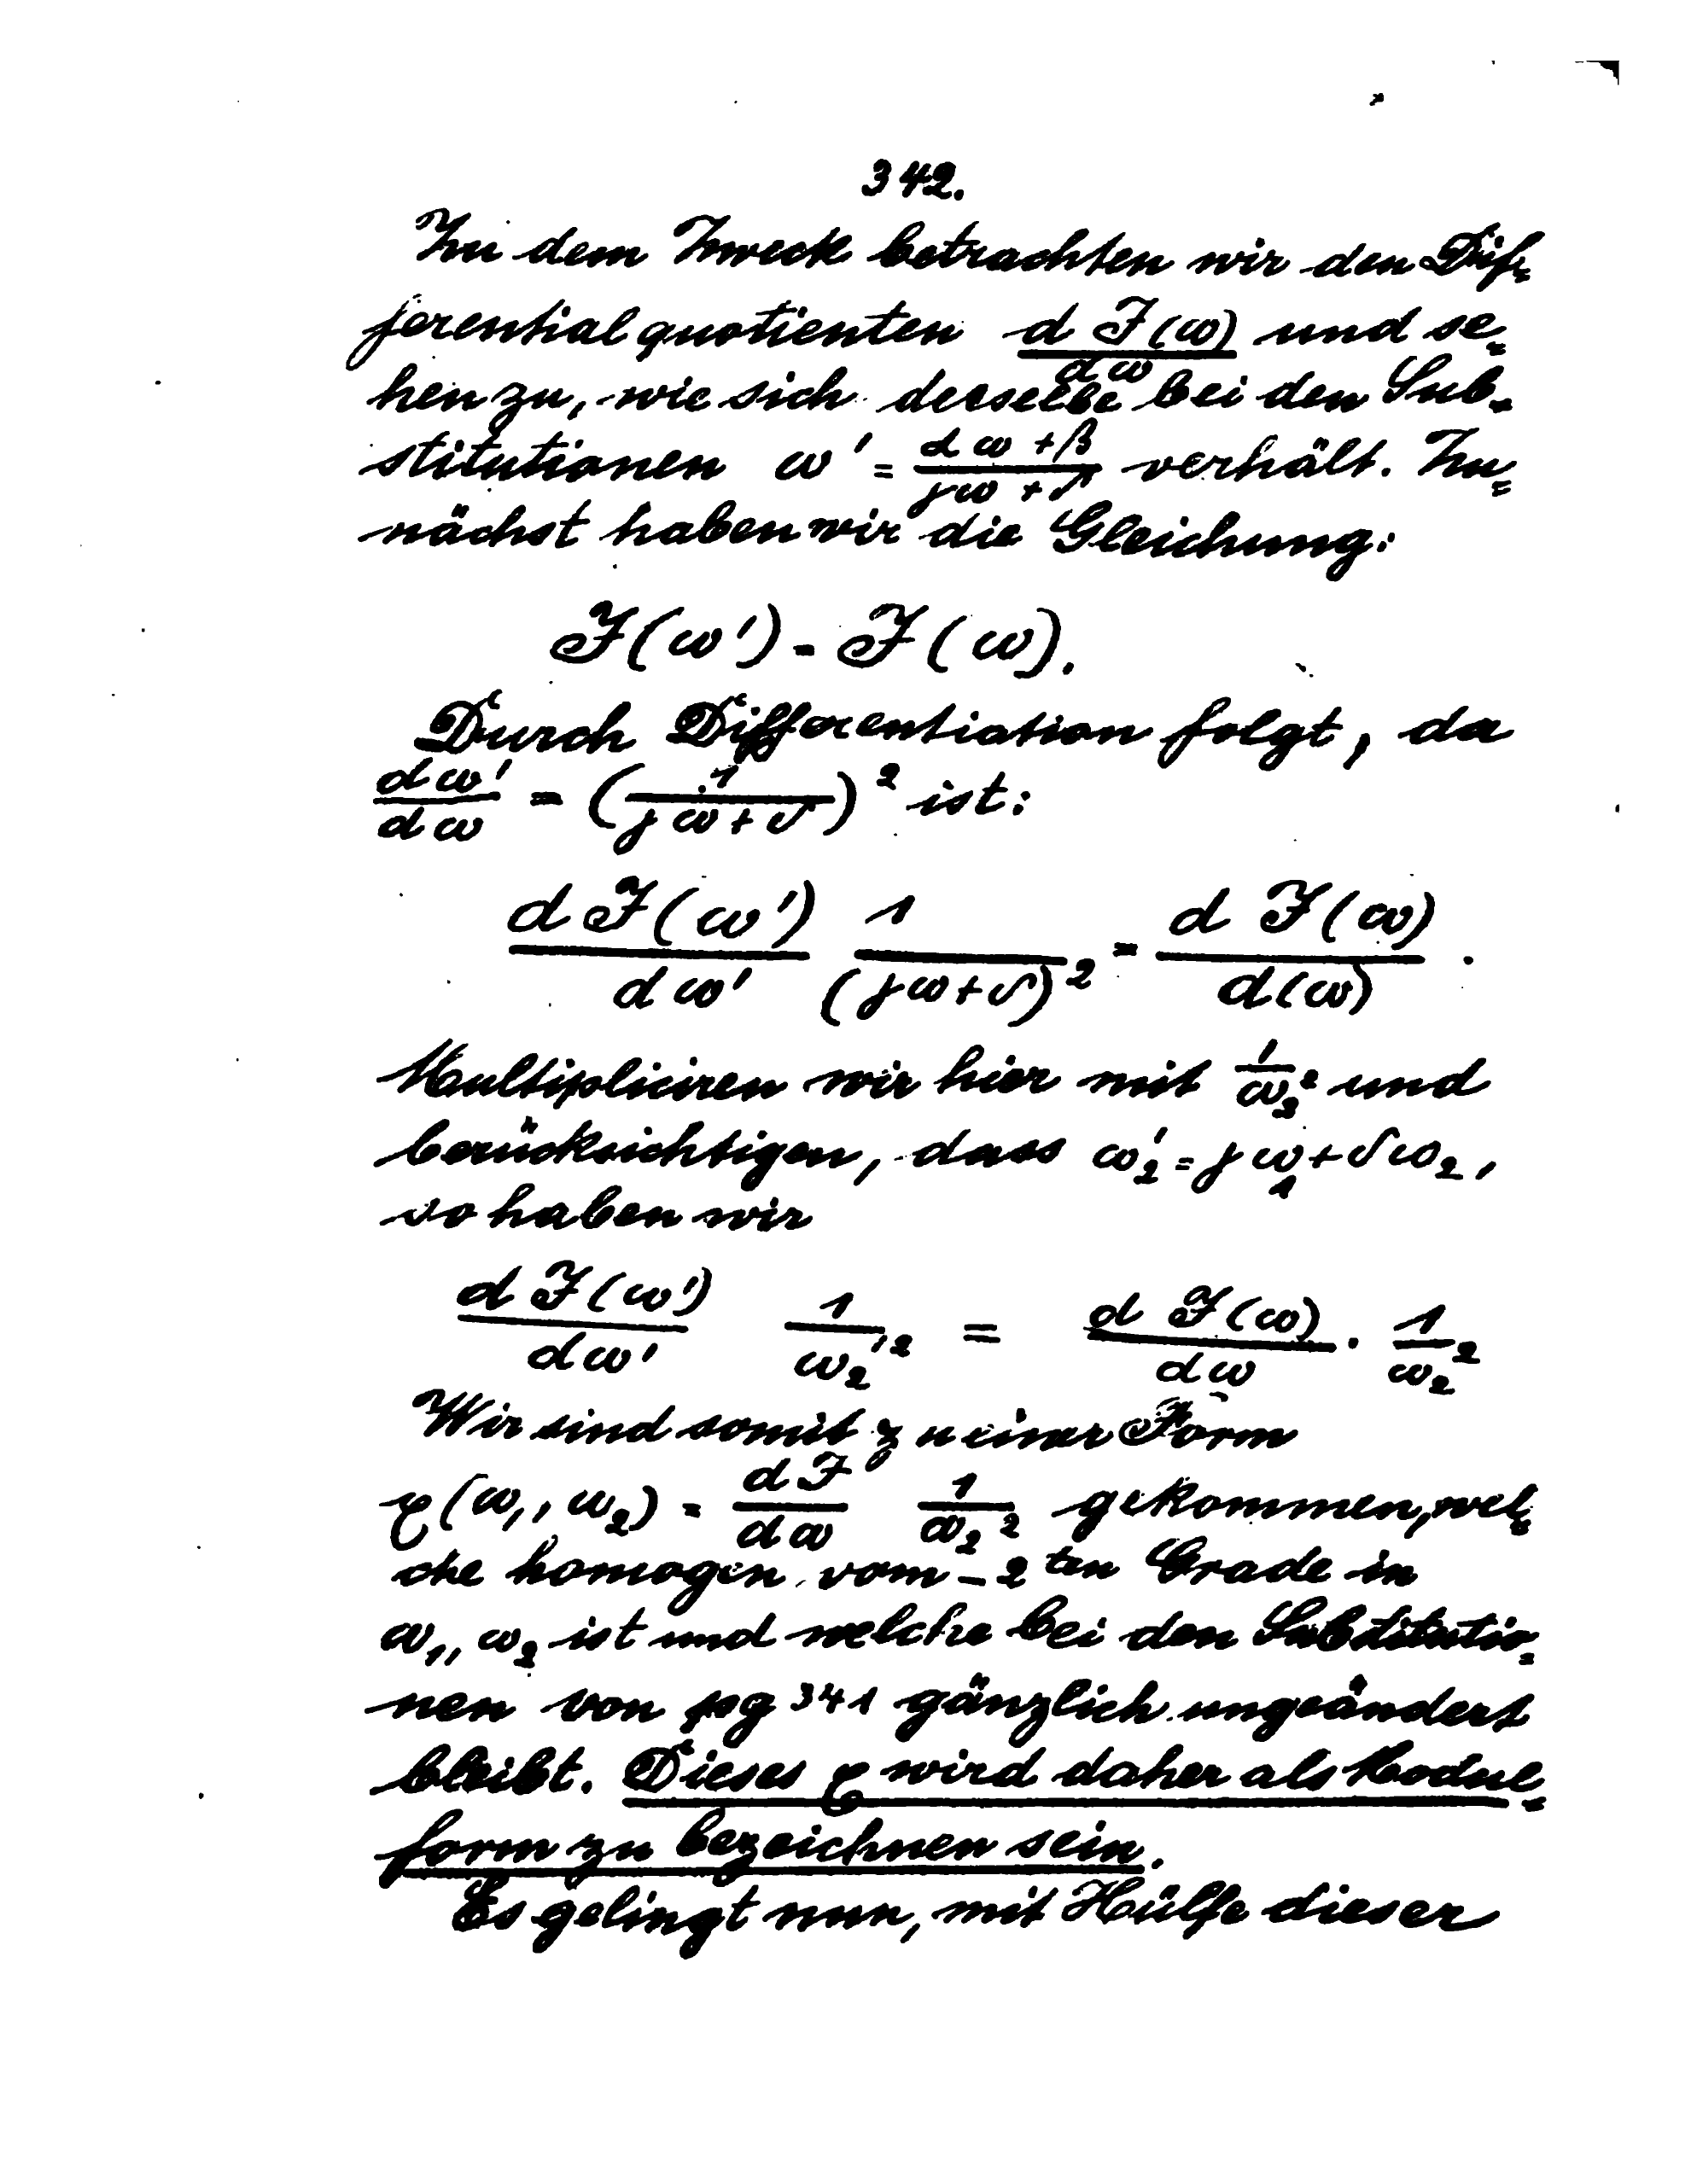 342.
Zu dem Zweck betrachten wir den Dif-
ferentialquotienten \frac{d J(ω)}{dω} und se-
hen zu, wie sich derselbe bei den Sub-
stitutionen ω' = \frac{αω+β}{γω+δ} verhält. Zu-
nächst haben wir die Gleichung:
J(ω') = J(ω).
Durch Differentiation folgt, da
\frac{dω'}{dω} = (\frac{1}{γω+δ})² ist:
\frac{d J(ω')}{dω'} \frac{1}{(γω+δ)²} = \frac{d J(ω)}{d(ω)}.
Multipliciren wir hier mit \frac{1}{ω₂²} und
berücksichtigen, dass ω₂' = γω₁+δω₂,
so haben wir
\frac{d J(ω')}{dω'} \frac{1}{ω₂'²} = \frac{d J(ω)}{dω} · \frac{1}{ω₂²}
Wir sind somit zu einer Form
φ(ω₁, ω₂) = \frac{dJ}{dω} \frac{1}{ω₂²} gekommen, wel-
che homogen vom -2ten Grade in
ω₁, ω₂ ist und welche bei den Substitutio-
nen von pg 341 gänzlich ungeändert
bleibt. Dieses φ wird daher als Modul-
form zu bezeichnen sein.
Es gelingt nun, mit Hülfe dieser